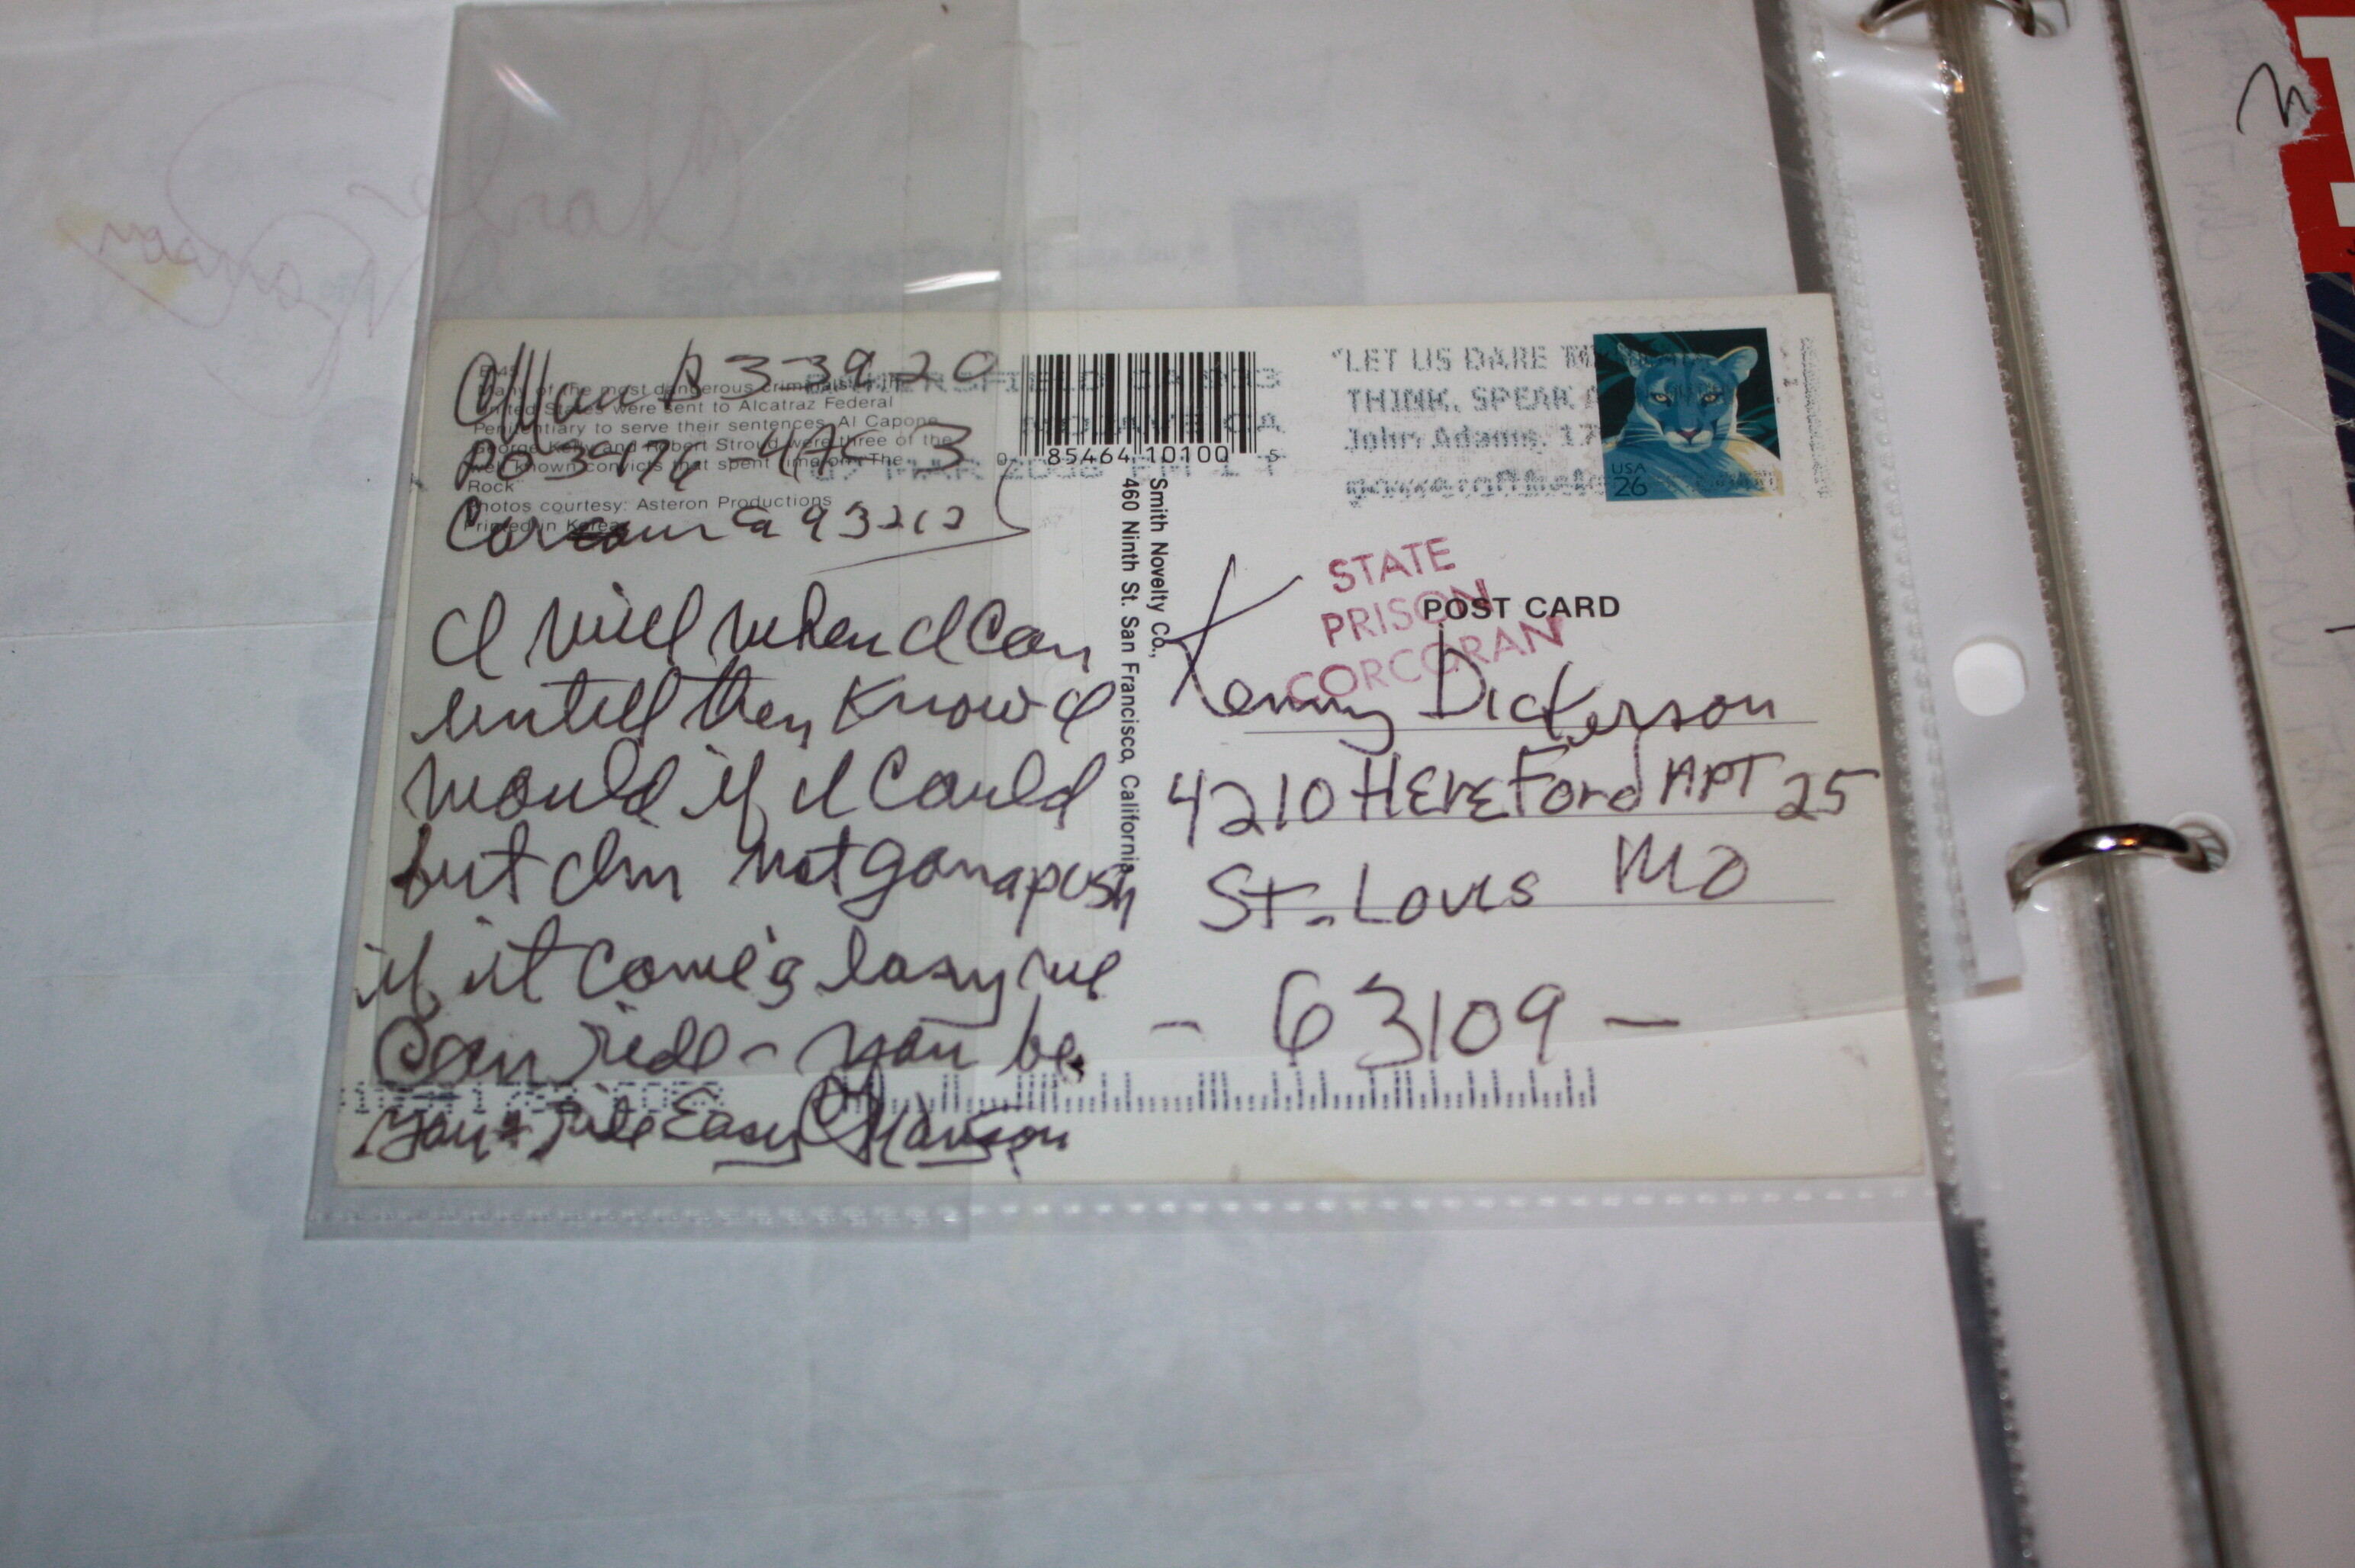 B 33920
Many of the most dangerous criminals in the
United States were sent to Alcatraz Federal
Penitentiary to serve their sentences. Al Capone,
George Kelly and Robert Stroud were three of the
well known convicts that spent time on "The
Rock"
Photos courtesy: Asteron Productions
Printed in Korea
PO 3476
Corcoran Ca 93212
I will when I Can
untill then Know I
would if I Could
but Im not gona push
if it Come's easy we
Can ride - you be
you + ride Easy C Manson
0 85464 10100 5
Smith Novelty Co.,
460 Ninth St. San Francisco, California
BAKERSFIELD CA 933
MOJAVE CA
MAR 2008 PM
"LET US DARE TO
THINK, SPEAK
John Adams, 17
USA
26
STATE
PRISON
CORCORAN
POST CARD
Kenny Dickerson
4210 HEREFord APT 25
St. Louis MO
- 63109 -